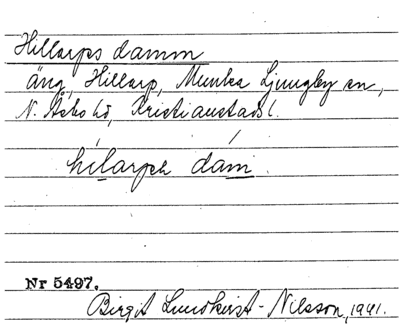 Hillarps damm
äng, Hillarp, Munka Ljungby sn,
N. Åsbo hd, Kristianstads l.
hilarps dam.
Nr 5497.
Birgit Lundkvist-Nilsson, 1941.